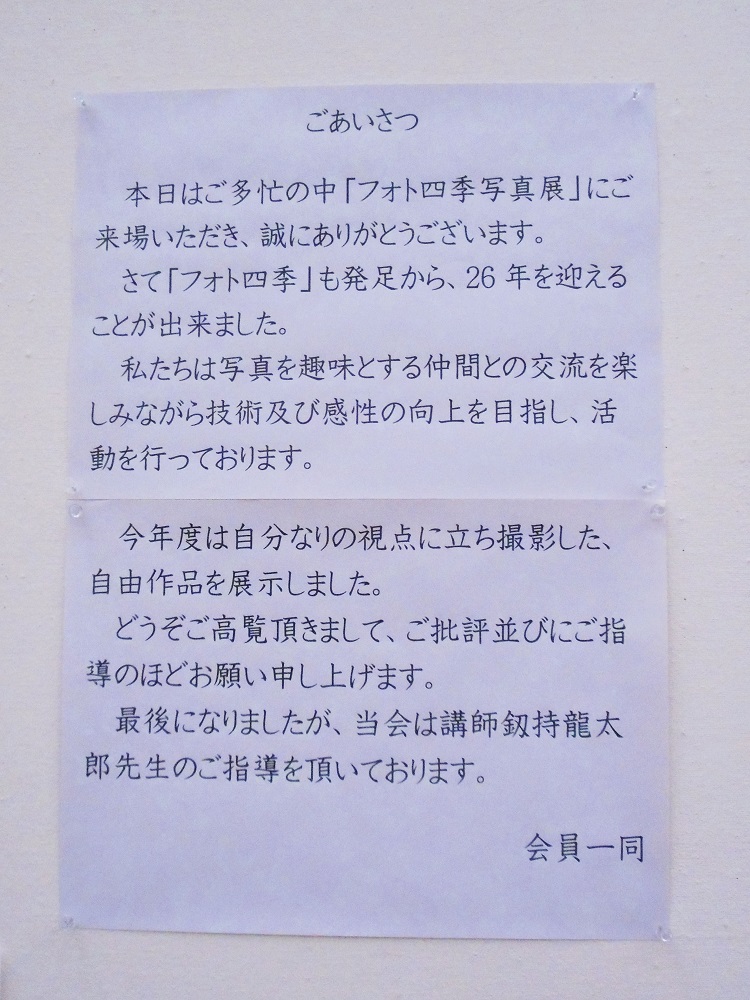 ごあいさつ
本日はご多忙の中「フォト四季写真展」にご
来場いただき、誠にありがとうございます。
さて「フォト四季」も発足から、26 年を迎える
ことが出来ました。
私たちは写真を趣味とする仲間との交流を楽
しみながら技術及び感性の向上を目指し、活
動を行っております。
今年度は自分なりの視点に立ち撮影した、
自由作品を展示しました。
どうぞご高覧頂きまして、ご批評並びにご指
導のほどお願い申し上げます。
最後になりましたが、当会は講師釼持龍太
郎先生のご指導を頂いております。
会員一同